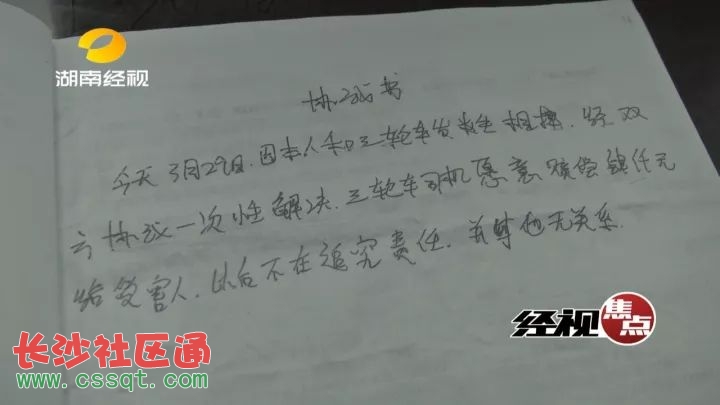 湖南经视
协议书
今天3月29日.因本人和三轮车发生相撞.经双
方协议一次性解决.三轮车司机愿意赔偿 仟元
给受害人.以后不在追究责任.并与他无关系.
经视焦点
长沙社区通
www.cssqt.com